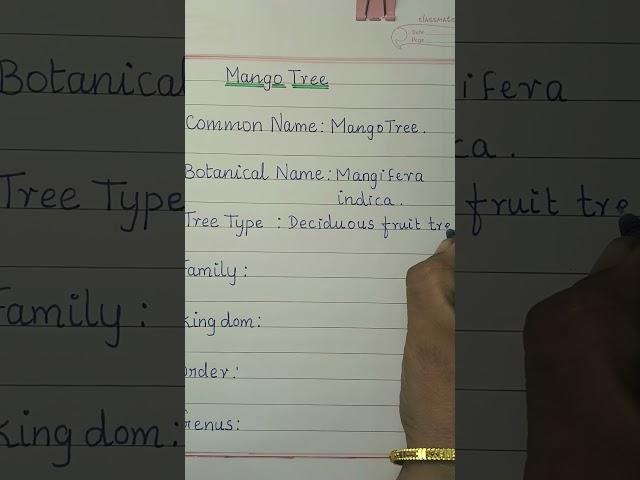 classmate
Date
Page
Mango Tree
Common Name: Mango Tree.
Botanical Name: Mangifera
indica.
Tree Type : Deciduous fruit tre
Family:
Kingdom:
Order:
Genus: